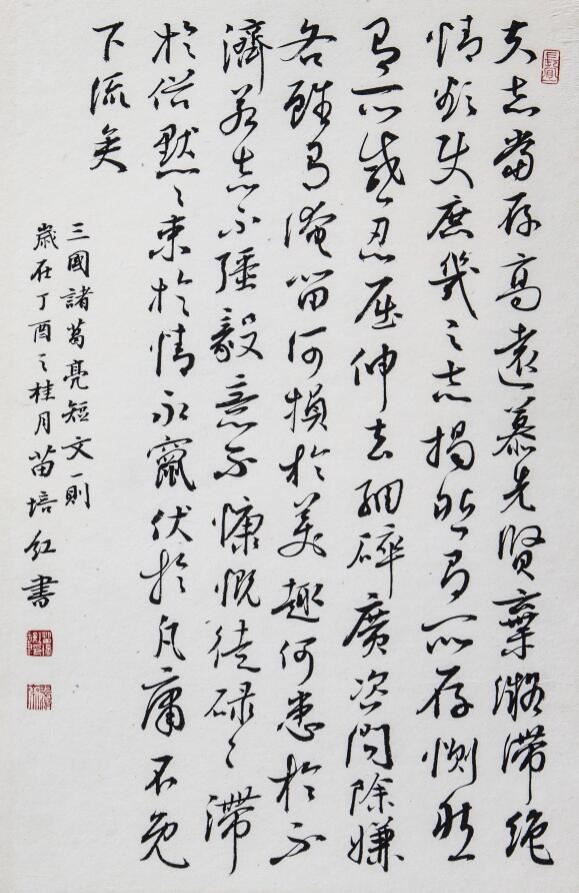 夫志當存高遠慕先賢棄凝滯絕
情欲使庶幾之志揭然有所存惻然
有所感忍屈伸去細碎廣咨問除嫌
吝雖有淹留何損於美趣何患於不
濟若志不彊毅意不慷慨徒碌々滯
於俗默々束於情永竄伏於凡庸不免
下流矣
三國諸葛亮短文一則
歲在丁酉之桂月苗培紅書